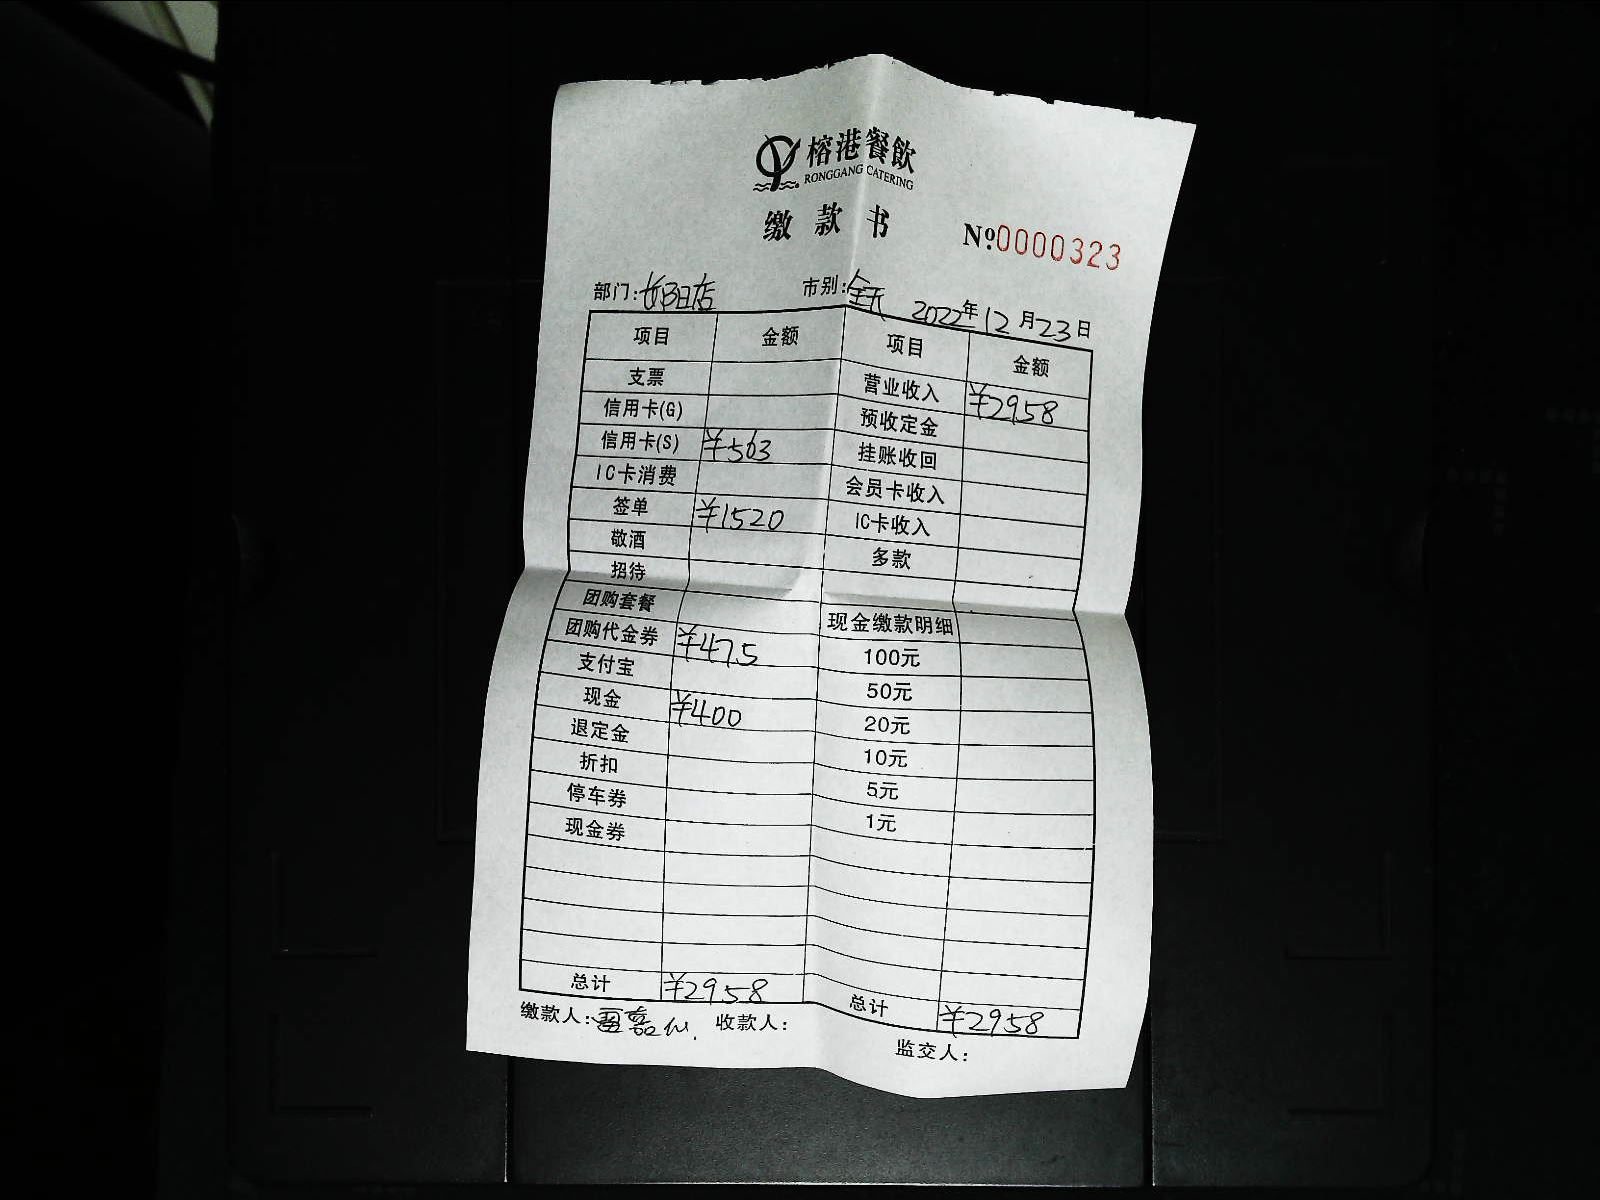 榕港餐飲
RONGGANG CATERING
缴款书
№0000323
部门:好日店 市别:全天 2022年12月23日
项目 金额 项目 金额
支票 营业收入 ¥2958
信用卡(G) 预收定金
信用卡(S) ¥563 挂账收回
IC卡消费 会员卡收入
签单 ¥1520 IC卡收入
敬酒 多款
招待
团购套餐 现金缴款明细
团购代金券 ¥475 100元
支付宝 50元
现金 ¥400 20元
退定金 10元
折扣 5元
停车券 1元
现金券
总计 ¥2958 总计 ¥2958
缴款人: 嘉 收款人:
监交人: